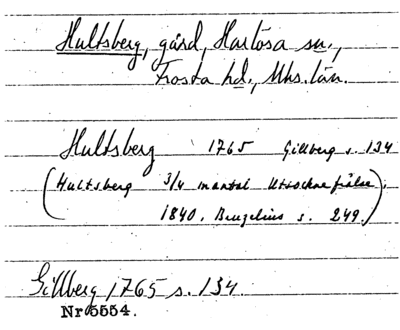 Hultsberg, gård, Harlösa sn.,
Frosta hd., Mhs. län.
Hultsberg 1765 Gillberg s. 134
(Hultsberg 3/4 mantal Utsockne frälse,
1840. Bengelius s. 249.)
Gillberg 1765 s. 134.
Nr 5554.